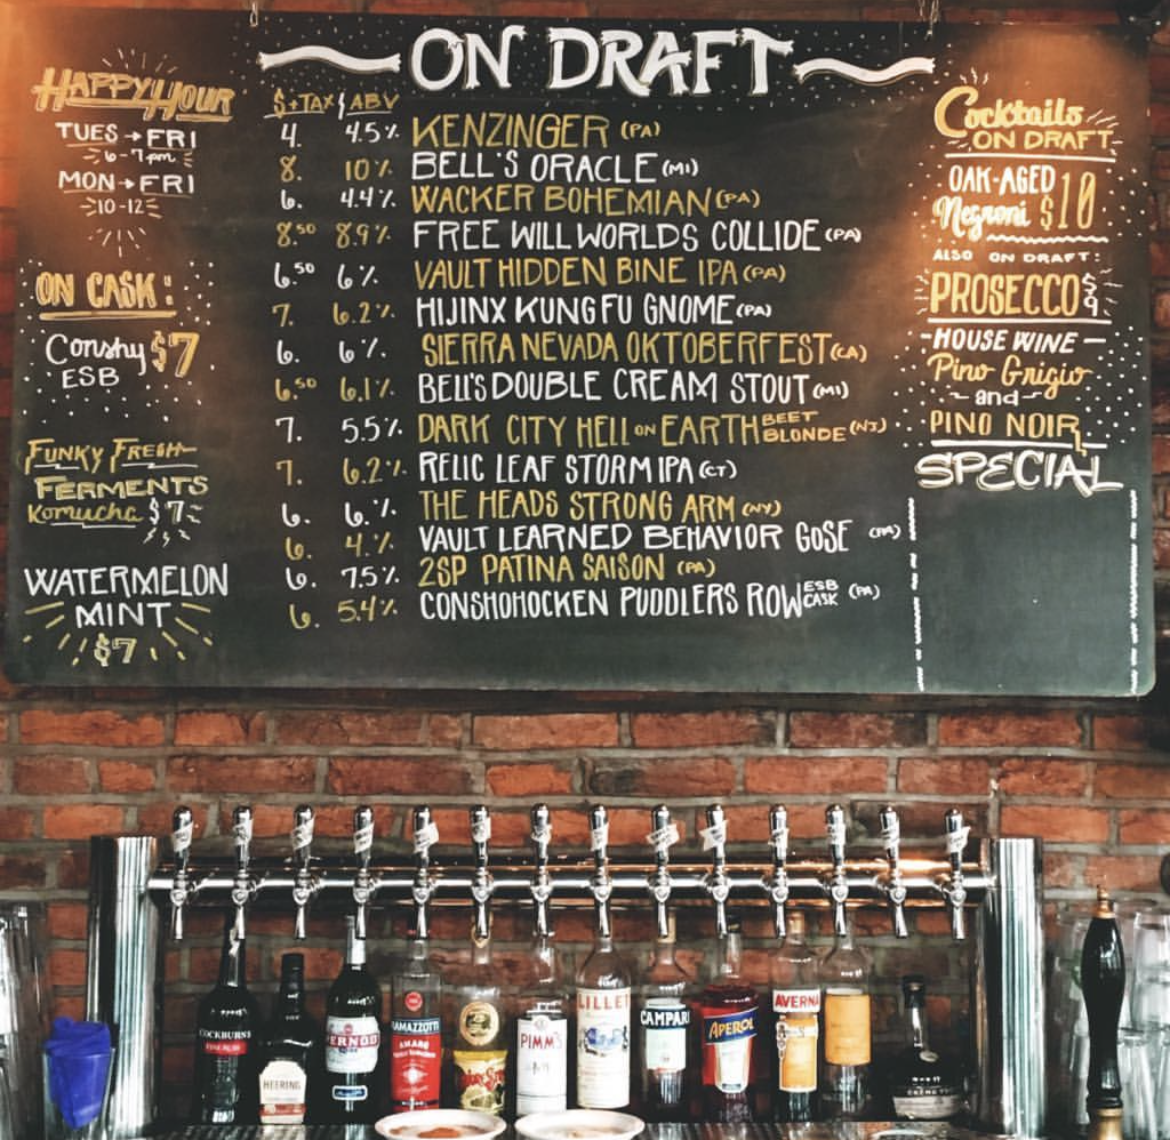 ON DRAFT
HAPPY HOUR
TUES → FRI
6-7pm
MON → FRI
10-12
ON CASK:
Conshy $7
ESB
FUNKY FRESH
FERMENTS
Komucha $7
WATERMELON
MINT
$7
$+TAX ABV
4. 4.5% KENZINGER (PA)
8. 10% BELL'S ORACLE (MI)
6. 4.4% WACKER BOHEMIAN (PA)
8.50 8.9% FREE WILL WORLDS COLLIDE (PA)
6.50 6% VAULT HIDDEN BINE IPA (PA)
7. 6.2% HIJINX KUNG FU GNOME (PA)
6. 6% SIERRA NEVADA OKTOBERFEST (CA)
6.50 6.1% BELL'S DOUBLE CREAM STOUT (MI)
7. 5.5% DARK CITY HELL ON EARTH BEET BLONDE (NJ)
7. 6.2% RELIC LEAF STORM IPA (CT)
6. 6.% THE HEADS STRONG ARM (NY)
6. 4.% VAULT LEARNED BEHAVIOR GOSE (PA)
6. 7.5% 2SP PATINA SAISON (PA)
6. 5.4% CONSHOHOCKEN PUDDLERS ROW ESB CASK (PA)
Cocktails
ON DRAFT
OAK-AGED
Negroni $10
ALSO ON DRAFT:
PROSECCO $9
-HOUSE WINE-
Pino Grigio
-and-
PINO NOIR
SPECIAL
COCKBURN'S
HEERING
PERNOD
RAMAZZOTTI
AMARO
PIMM'S
LILLET
CAMPARI
APEROL
AVERNA